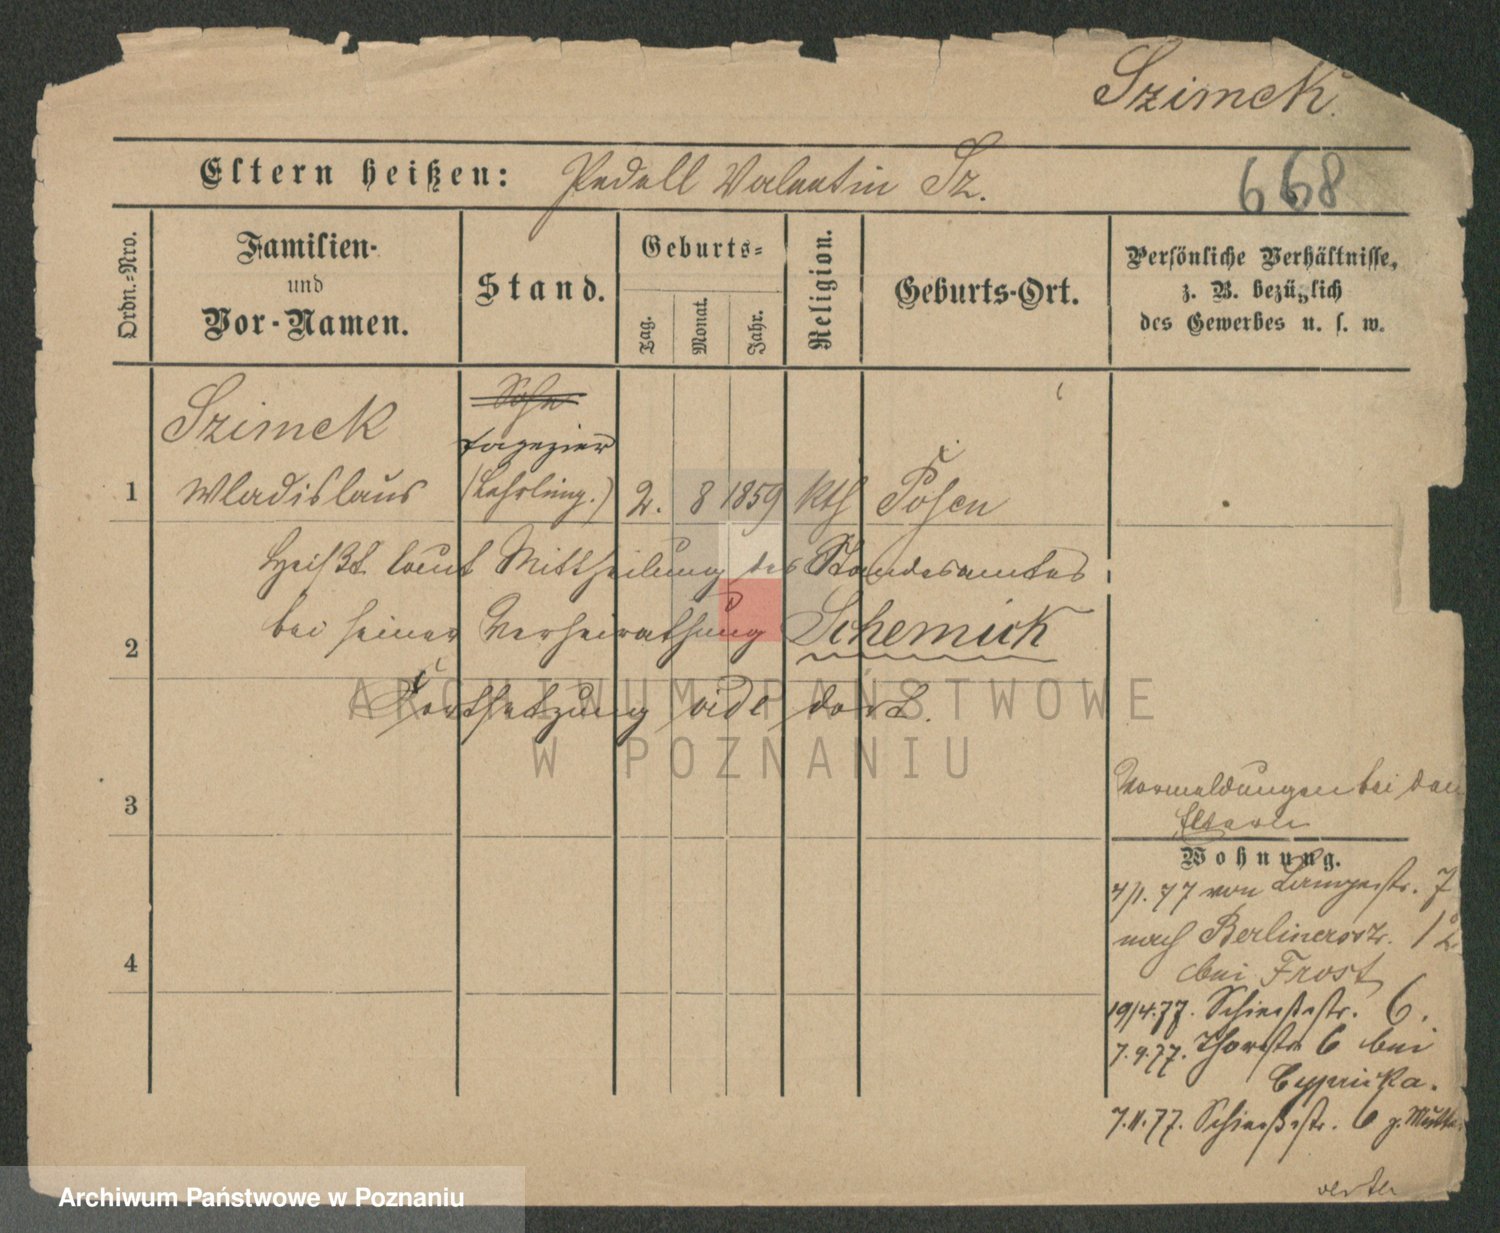 Szimek.
Eltern heißen: Pedell Valentin Sz.
668
Ordn.-Nro.
Familien-
und
Vor-Namen.
Stand.
Geburts-
Tag.
Monat.
Jahr.
Religion.
Geburts-Ort.
Persönliche Verhältnisse,
z. B. bezüglich
des Gewerbes u. s. w.
Szimek
Sohn
Tapezier
1 Wladislaus (Lehrling.) 2. 8 1859 kth Posen
Heißt laut Mittheilung des Standesamtes
2 bei seiner Verheirathung Schemick
Fortsetzung vide dort.
ARCHIWUM PAŃSTWOWE
W POZNANIU
3
Vormeldungen bei den
Eltern
Wohnung.
4/1. 77 von Langestr. 7
nach Berlinerstr. 12
4
bei Frost
19/4.77. Schießstr. 6.
7.9.77. Thorstr 6 bei
7.11.77. Schießstr. 6 z. Mutter
Archiwum Państwowe w Poznaniu